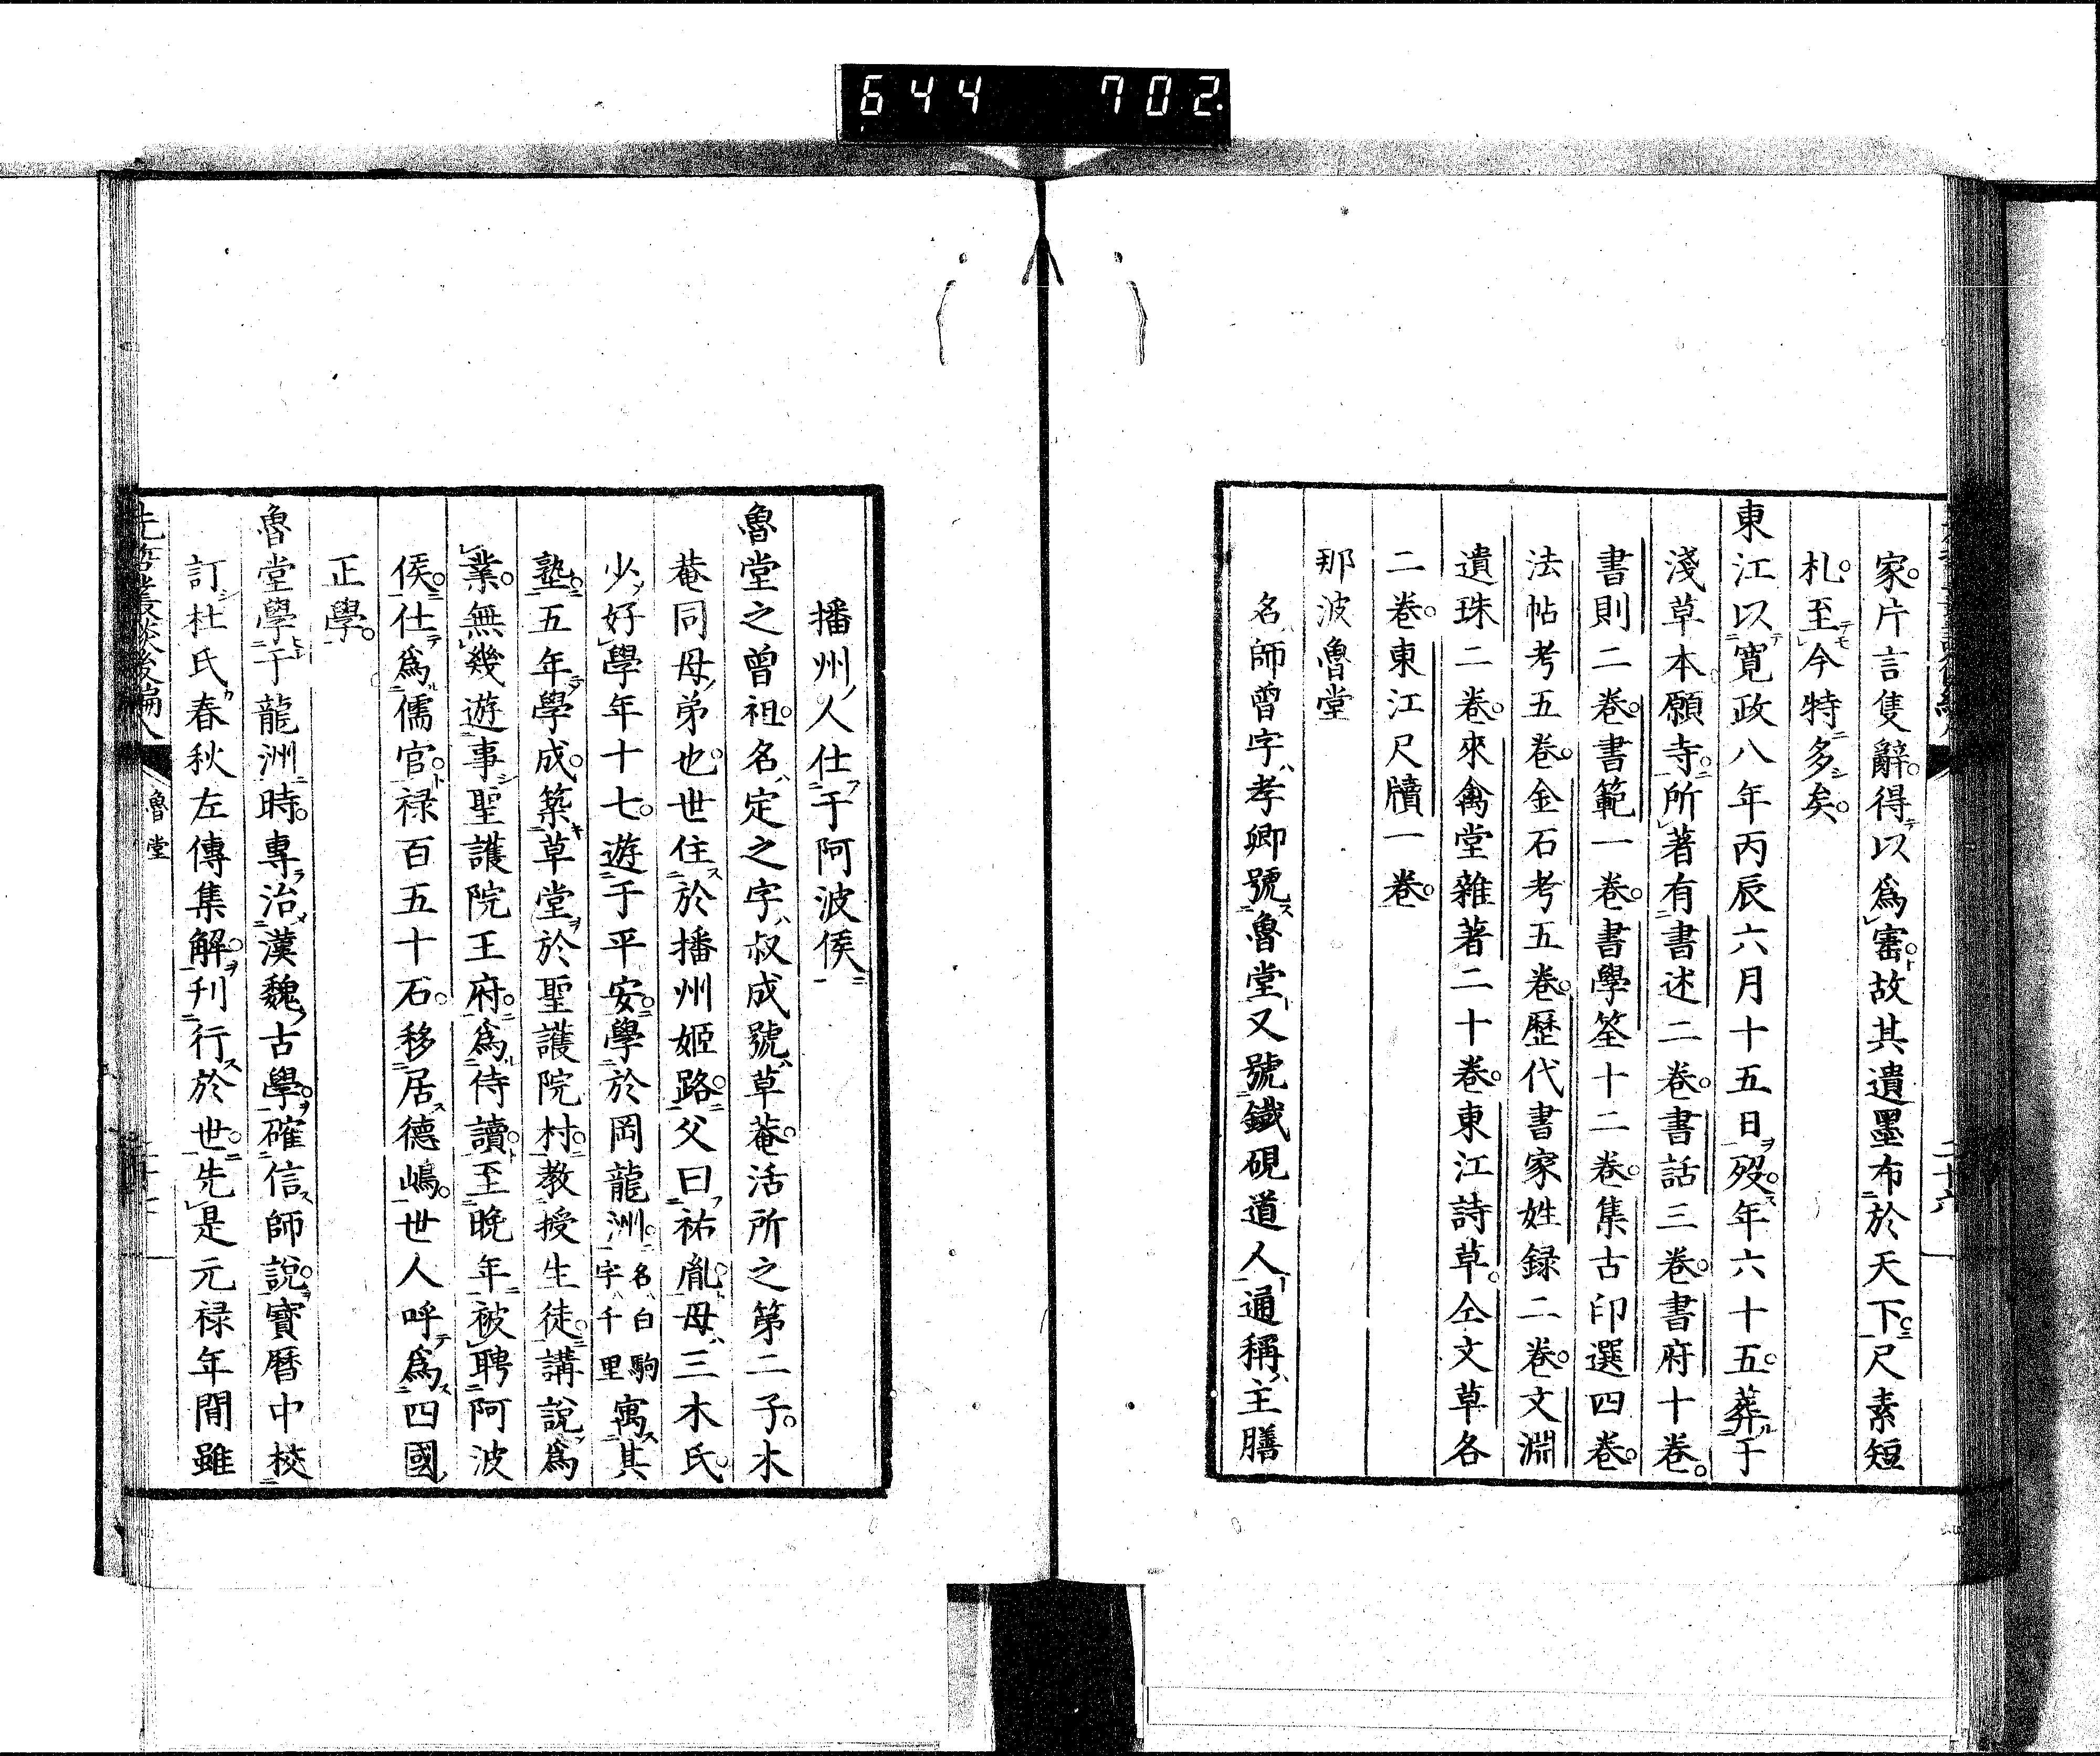 644 702
家。片言隻辭。得以爲審。故其遺墨布於天下。尺素短
札。至今特多矣。
東江以寛政八年丙辰六月十五日歿。年六十五。葬于
淺草本願寺。所著有書述二卷。書話三卷。書府十卷。
書則二卷。書範一卷。書學筌十二卷。集古印選四卷。
法帖考五卷。金石考五卷。歷代書家姓録二卷。文淵
遺珠二卷。來禽堂雜著二十卷。東江詩草。仝文草各
二卷。東江尺牘一卷。
那波魯堂
名師曾字孝卿號魯堂又號鐵硯道人通稱主膳
播州人仕于阿波侯
魯堂之曾祖。名定之字叔成號草菴。活所之第二子。木
菴同母弟也。世住於播州姬路。父曰祐胤。母三木氏。
少好學年十七。遊于平安。學於岡龍洲。名白駒字千里寓其
塾。五年學成。築草堂於聖護院村。教授生徒。講說爲
業。無幾遊事聖護院王府。爲侍讀。至晩年被聘阿波
侯。仕爲儒官。禄百五十石。移居德嶋。世人呼爲四國
正學。
魯堂學于龍洲時。專治漢魏古學。確信師說。寶曆中校
訂杜氏春秋左傳集解。刊行於世。先是元禄年間雖
魯堂